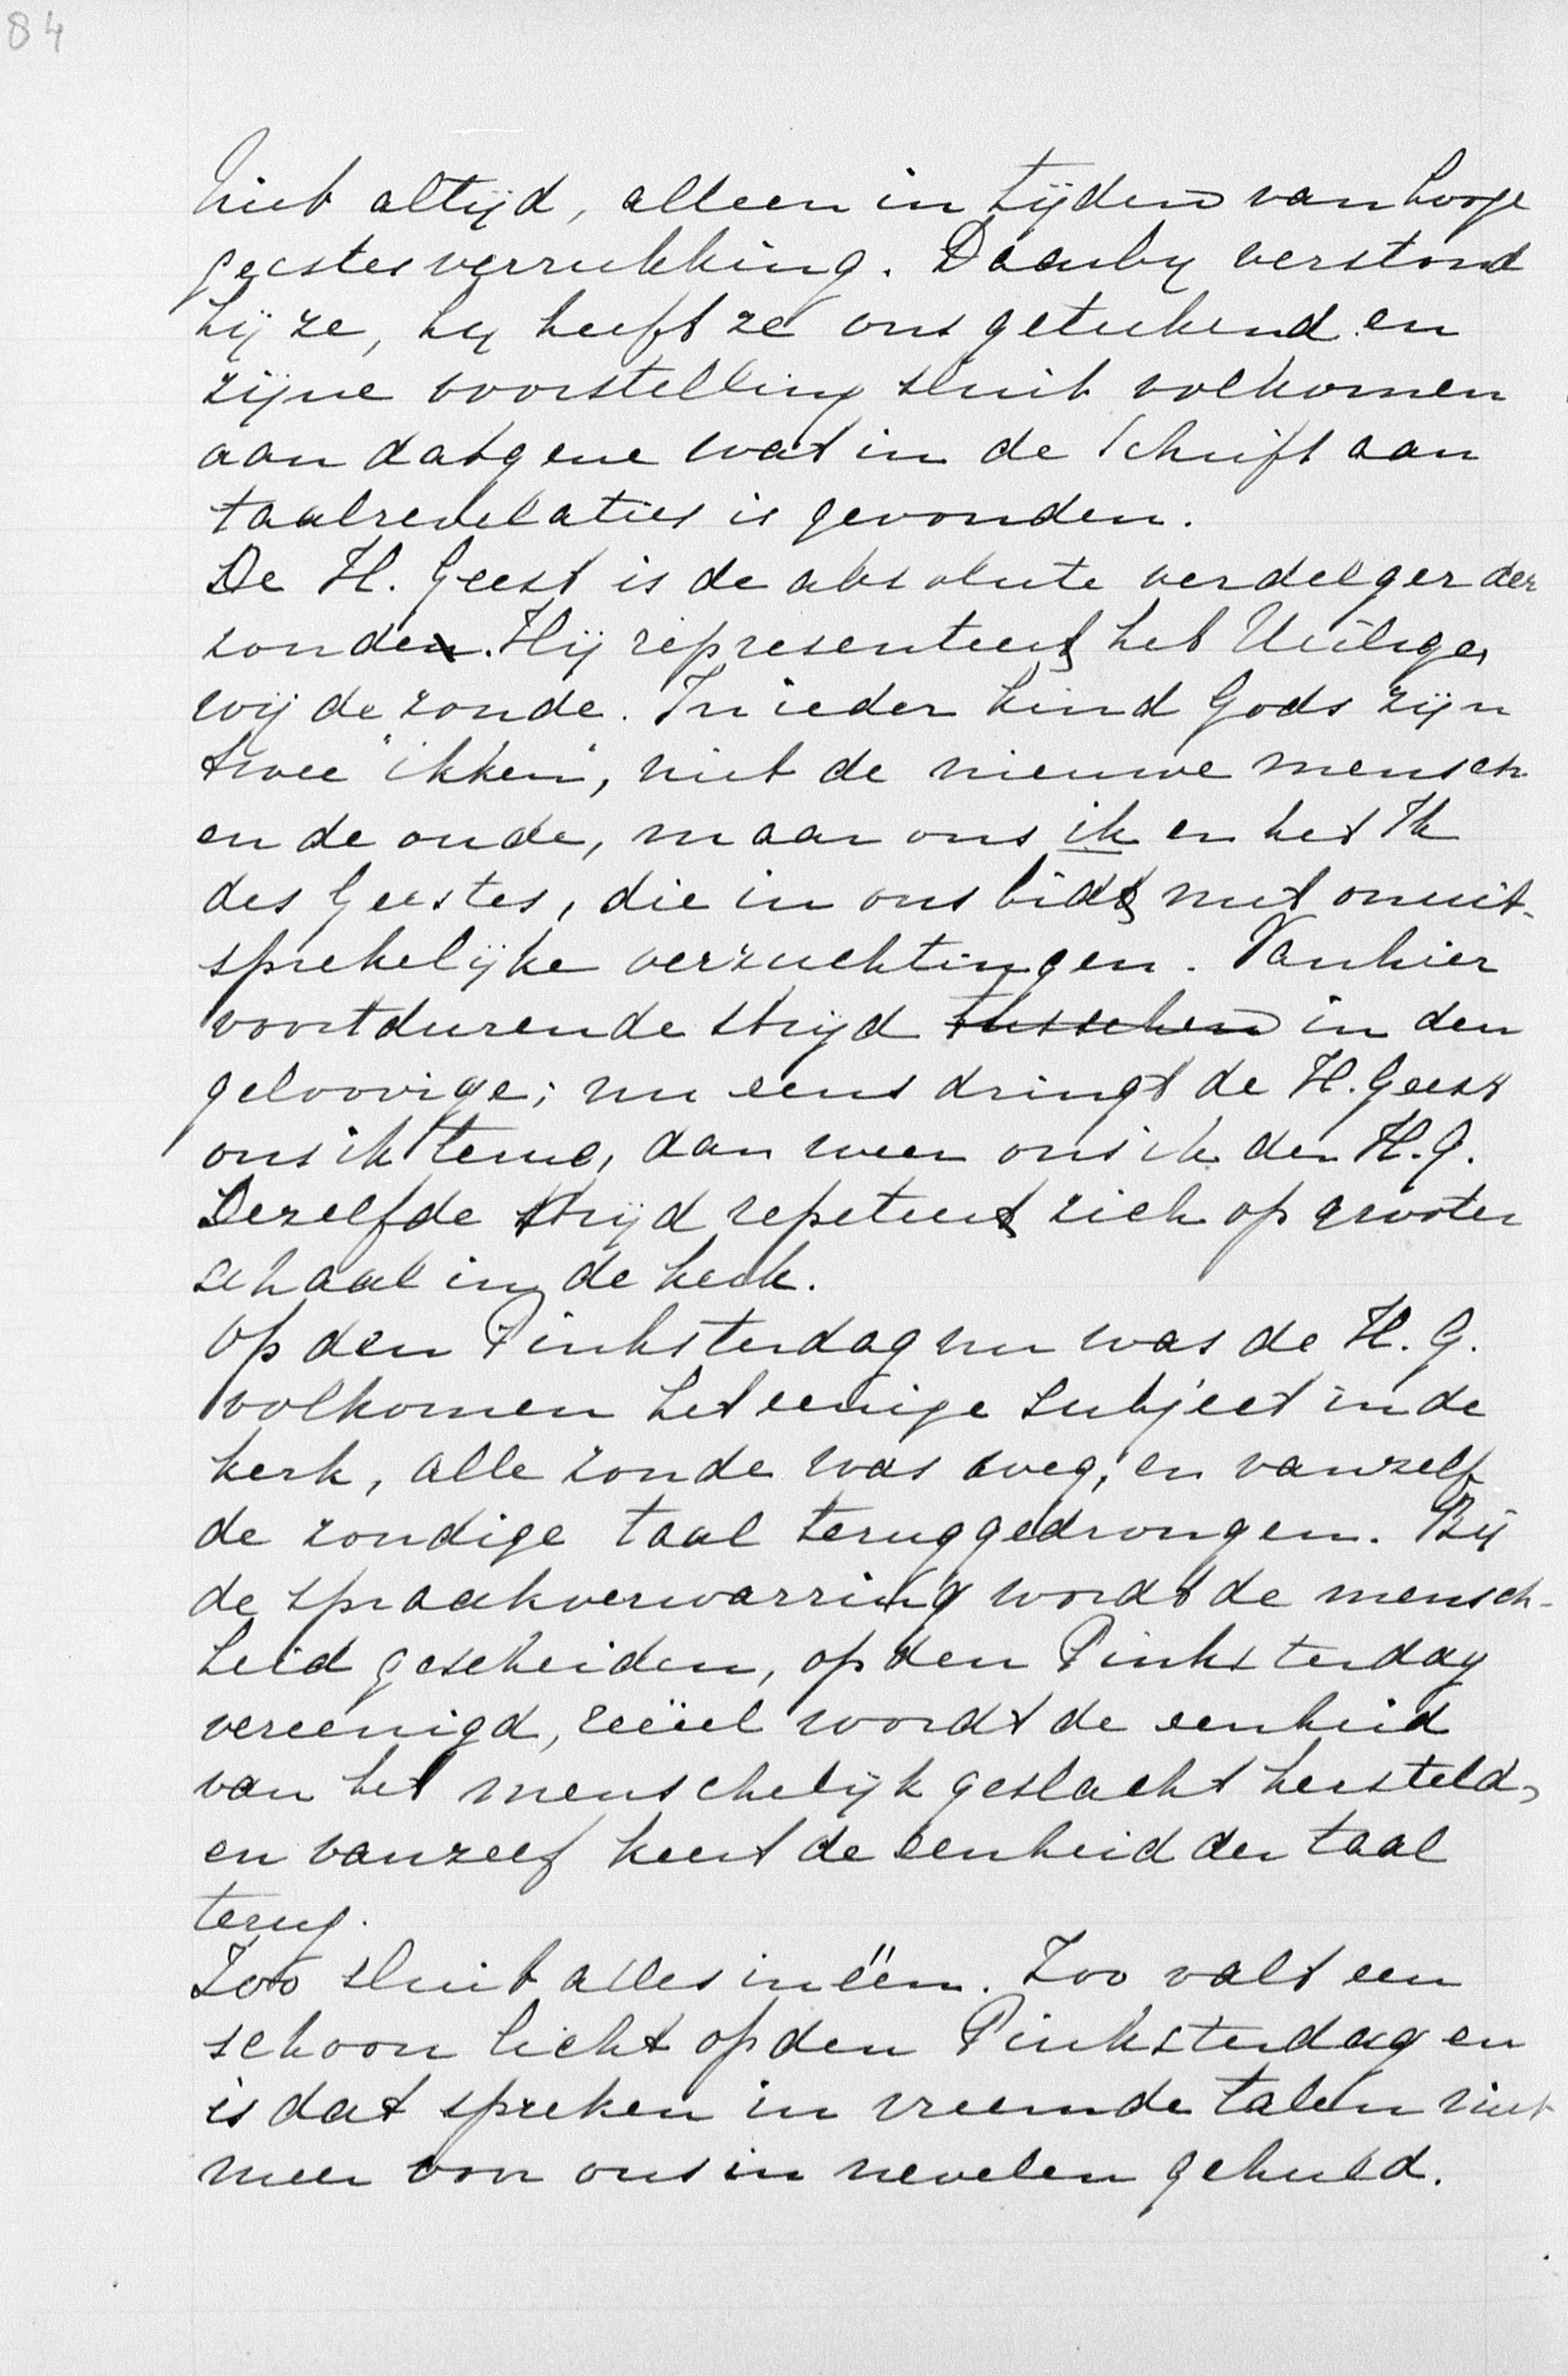 84
niet altijd, alleen in tijden van hooge
geestesverrukking. Daarby verstond
hij ze, hy heeft ze ons geteekend en
zijne voorstelling sluit volkomen
aan datgene wat in de Schrift aan
taalrevelaties is gevonden.
De H. Geest is de absolute verdelger der
zonden. Hij representeert het Heilige,
wij de zonde. In ieder kind Gods zijn
twee "ikken", niet de nieuwe mensch
en de oude, maar ons ik en het Ik
des Geestes, die in ons bidt met onuit-
sprekelijke verzuchtingen. Van hier
voortdurende strijd tusschen in den
geloovige; nu eens dringt de H. Geest
ons ik terug, dan weer ons ik den H.G.
Dezelfde strijd repeteert zich op grooter
schaal in de kerk.
Op den Pinksterdag nu was de H. G.
volkomen het eenige subject in de
kerk, alle zonde was weg, en vanzelf
de zondige taal teruggedrongen. Bij
de spraakverwarring wordt de mensch-
heid gescheiden, op den Pinksterdag
vereenigd, reëel wordt de eenheid
van het menschelijk geslacht hersteld,
en vanzelf keert de eenheid der taal
terug.
Zoo sluit alles inéén. Zoo valt een
schoon licht op den Pinksterdag en
is dat spreken in vreemde talen niet
meer voor ons in nevelen gehuld.